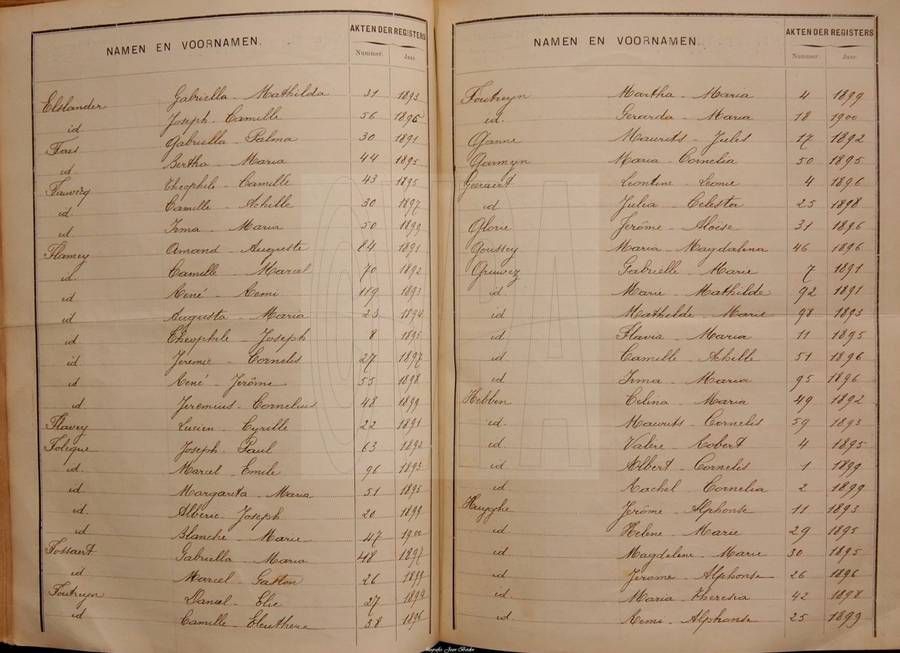 NAMEN EN VOORNAMEN. AKTEN DER REGISTERS
Nummer. Jaar.
Elslander Gabriella - Mathilda 31 1893
id Joseph - Camille 56 1896
Faes Gabriella - Palma 30 1891
id Bertha - Maria 44 1895
Fauverg Theophile - Camille 43 1895
id Camille - Achille 30 1897
id Irma - Maria 50 1899
Flamey Amand - Auguste 84 1891
id. Camille - Marcel 70 1892
id René - Remi 119 1893
id Augusta - Maria 23 1894
id Theophile - Joseph 8 1895
id Jeremie - Cornelis 27 1897
id René - Jerôme 55 1898
id Jeremius - Cornelius 48 1899
Flavey Lucien - Cyrille 22 1891
Foleque Joseph - Paul 63 1892
id. Marcel - Emile 96 1893
id Margarita - Maria 51 1895
id Alberic - Joseph 20 1899
id Blanche - Marie 47 1900
Fossaert Gabriella - Maria 48 1897
id Marcel - Gaston 26 1899
Foutryn Daniel - Elie 27 1894
id Camille - Eleuthere 38 1896
NAMEN EN VOORNAMEN. AKTEN DER REGISTERS
Nummer. Jaar.
Foutryn Martha - Maria 4 1899
id. Gerarda - Maria 18 1900
Ganne Maurits - Jules 17 1892
Garmyn Maria - Cornelia 50 1895
Geraert Leontine - Leonie 4 1896
id Julia - Celesta 25 1898
Glorie Jerôme - Aloïse 31 1896
Goussey Maria - Magdalena 46 1896
Gruwez Gabrielle - Marie 7 1891
id Marie - Mathilde 92 1891
id Mathilde - Marie 98 1893
id Flavia - Maria 11 1895
id Camille - Achille 51 1896
id Irma - Maria 95 1896
Hebben Celina - Maria 49 1892
id. Maurits - Cornelis 59 1893
id Valere - Robert 4 1895
id Albert - Cornelis 1 1899
id Rachel - Cornelia 2 1899
Heyghe Jerôme - Alphonse 11 1893
id Helene - Marie 29 1895
id Magdalene - Marie 30 1895
id Jerome - Alphonse 26 1896
id Maria - Theresia 42 1898
id Remi - Alphonse 25 1899